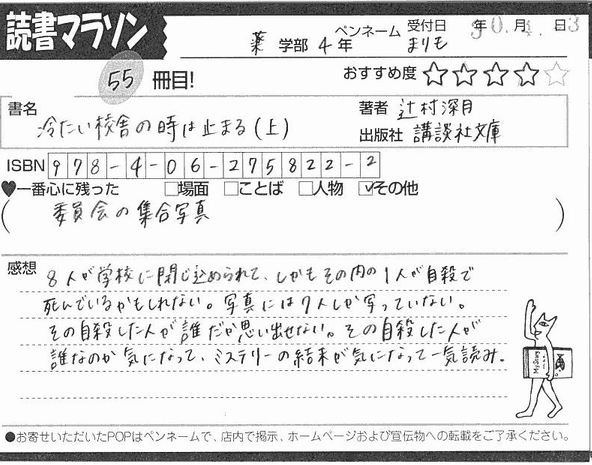 読書マラソン
薬 学部 4年 ペンネーム まりも 受付日 30年 4月 3日
55 冊目!
おすすめ度 ★★★★☆
書名 冷たい校舎の時は止まる(上)
著者 辻村深月
出版社 講談社文庫
ISBN 978-4-06-275822-2
♥一番心に残った □場面 □ことば □人物 ☑その他
(委員会の集合写真)
感想 8人が学校に閉じ込められて、しかもその内の1人が自殺で
死んでいるかもしれない。写真には7人しか写っていない。
その自殺した人が誰だか思い出せない。その自殺した人が
誰なのか気になって、ミステリーの結末が気になって一気読み。
●お寄せいただいたPOPはペンネームで、店内で掲示、ホームページおよび宣伝物への転載をご了承ください。